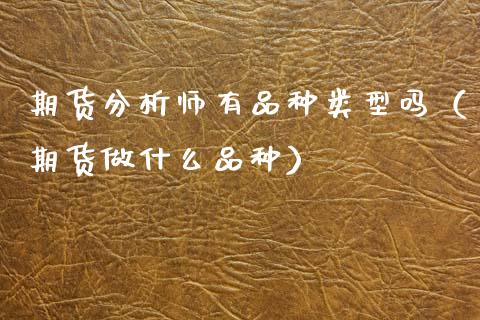 期货分析师有品种类型吗（
期货做什么品种）